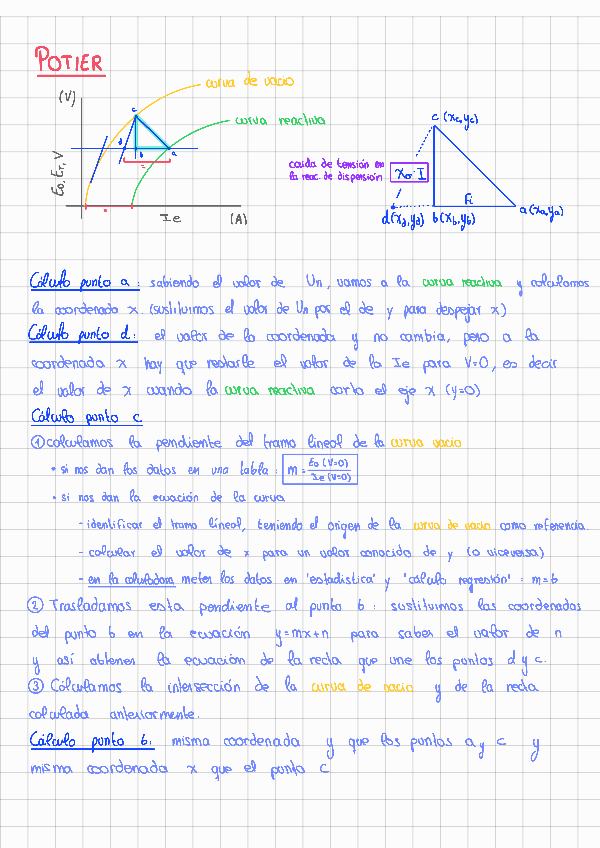 POTIER
curva de vacio
(V)
c
curva reactiva
c (xc, yc)
E0, ET, V
d
b
a
caida de tensión en
la reac. de dispersión
xσ·I
Fi
a (xa, ya)
d(xd, yd)
b(xb, yb)
Ie
(A)
Cálculo punto a: sabiendo el valor de Un, vamos a la curva reactiva y calculamos
la coordenada x (sustituimos el valor de Un por el de y para despejar x)
Cálculo punto d: el valor de la coordenada y no cambia, pero a la
coordenada x hay que restarle el valor de la Ie para V=0, es decir
el valor de x cuando la curva reactiva corta el eje x (y=0)
Cálculo punto c
① calculamos la pendiente del tramo lineal de la curva vacio
• si nos dan los datos en una tabla: m = E0 (V=0) / Ie (V=0)
• si nos dan la ecuación de la curva
- identificar el tramo líneal, teniendo el origen de la curva de vacio como referencia
- calcular el valor de x para un valor conocido de y (o viceversa)
- en la calculadora meter los datos en 'estadística' y 'cálculo regresión': m=b
② Trasladamos esta pendiente al punto b: sustituimos las coordenadas
del punto b en la ecuación y=mx+n para saber el valor de n
y así obtener la ecuación de la recta que une los puntos d y c.
③ Cálculamos la intersección de la curva de vacio y de la recta
calculada anteriormente.
Cálculo punto b: misma coordenada y que los puntos a y c y
misma coordenada x que el punto c